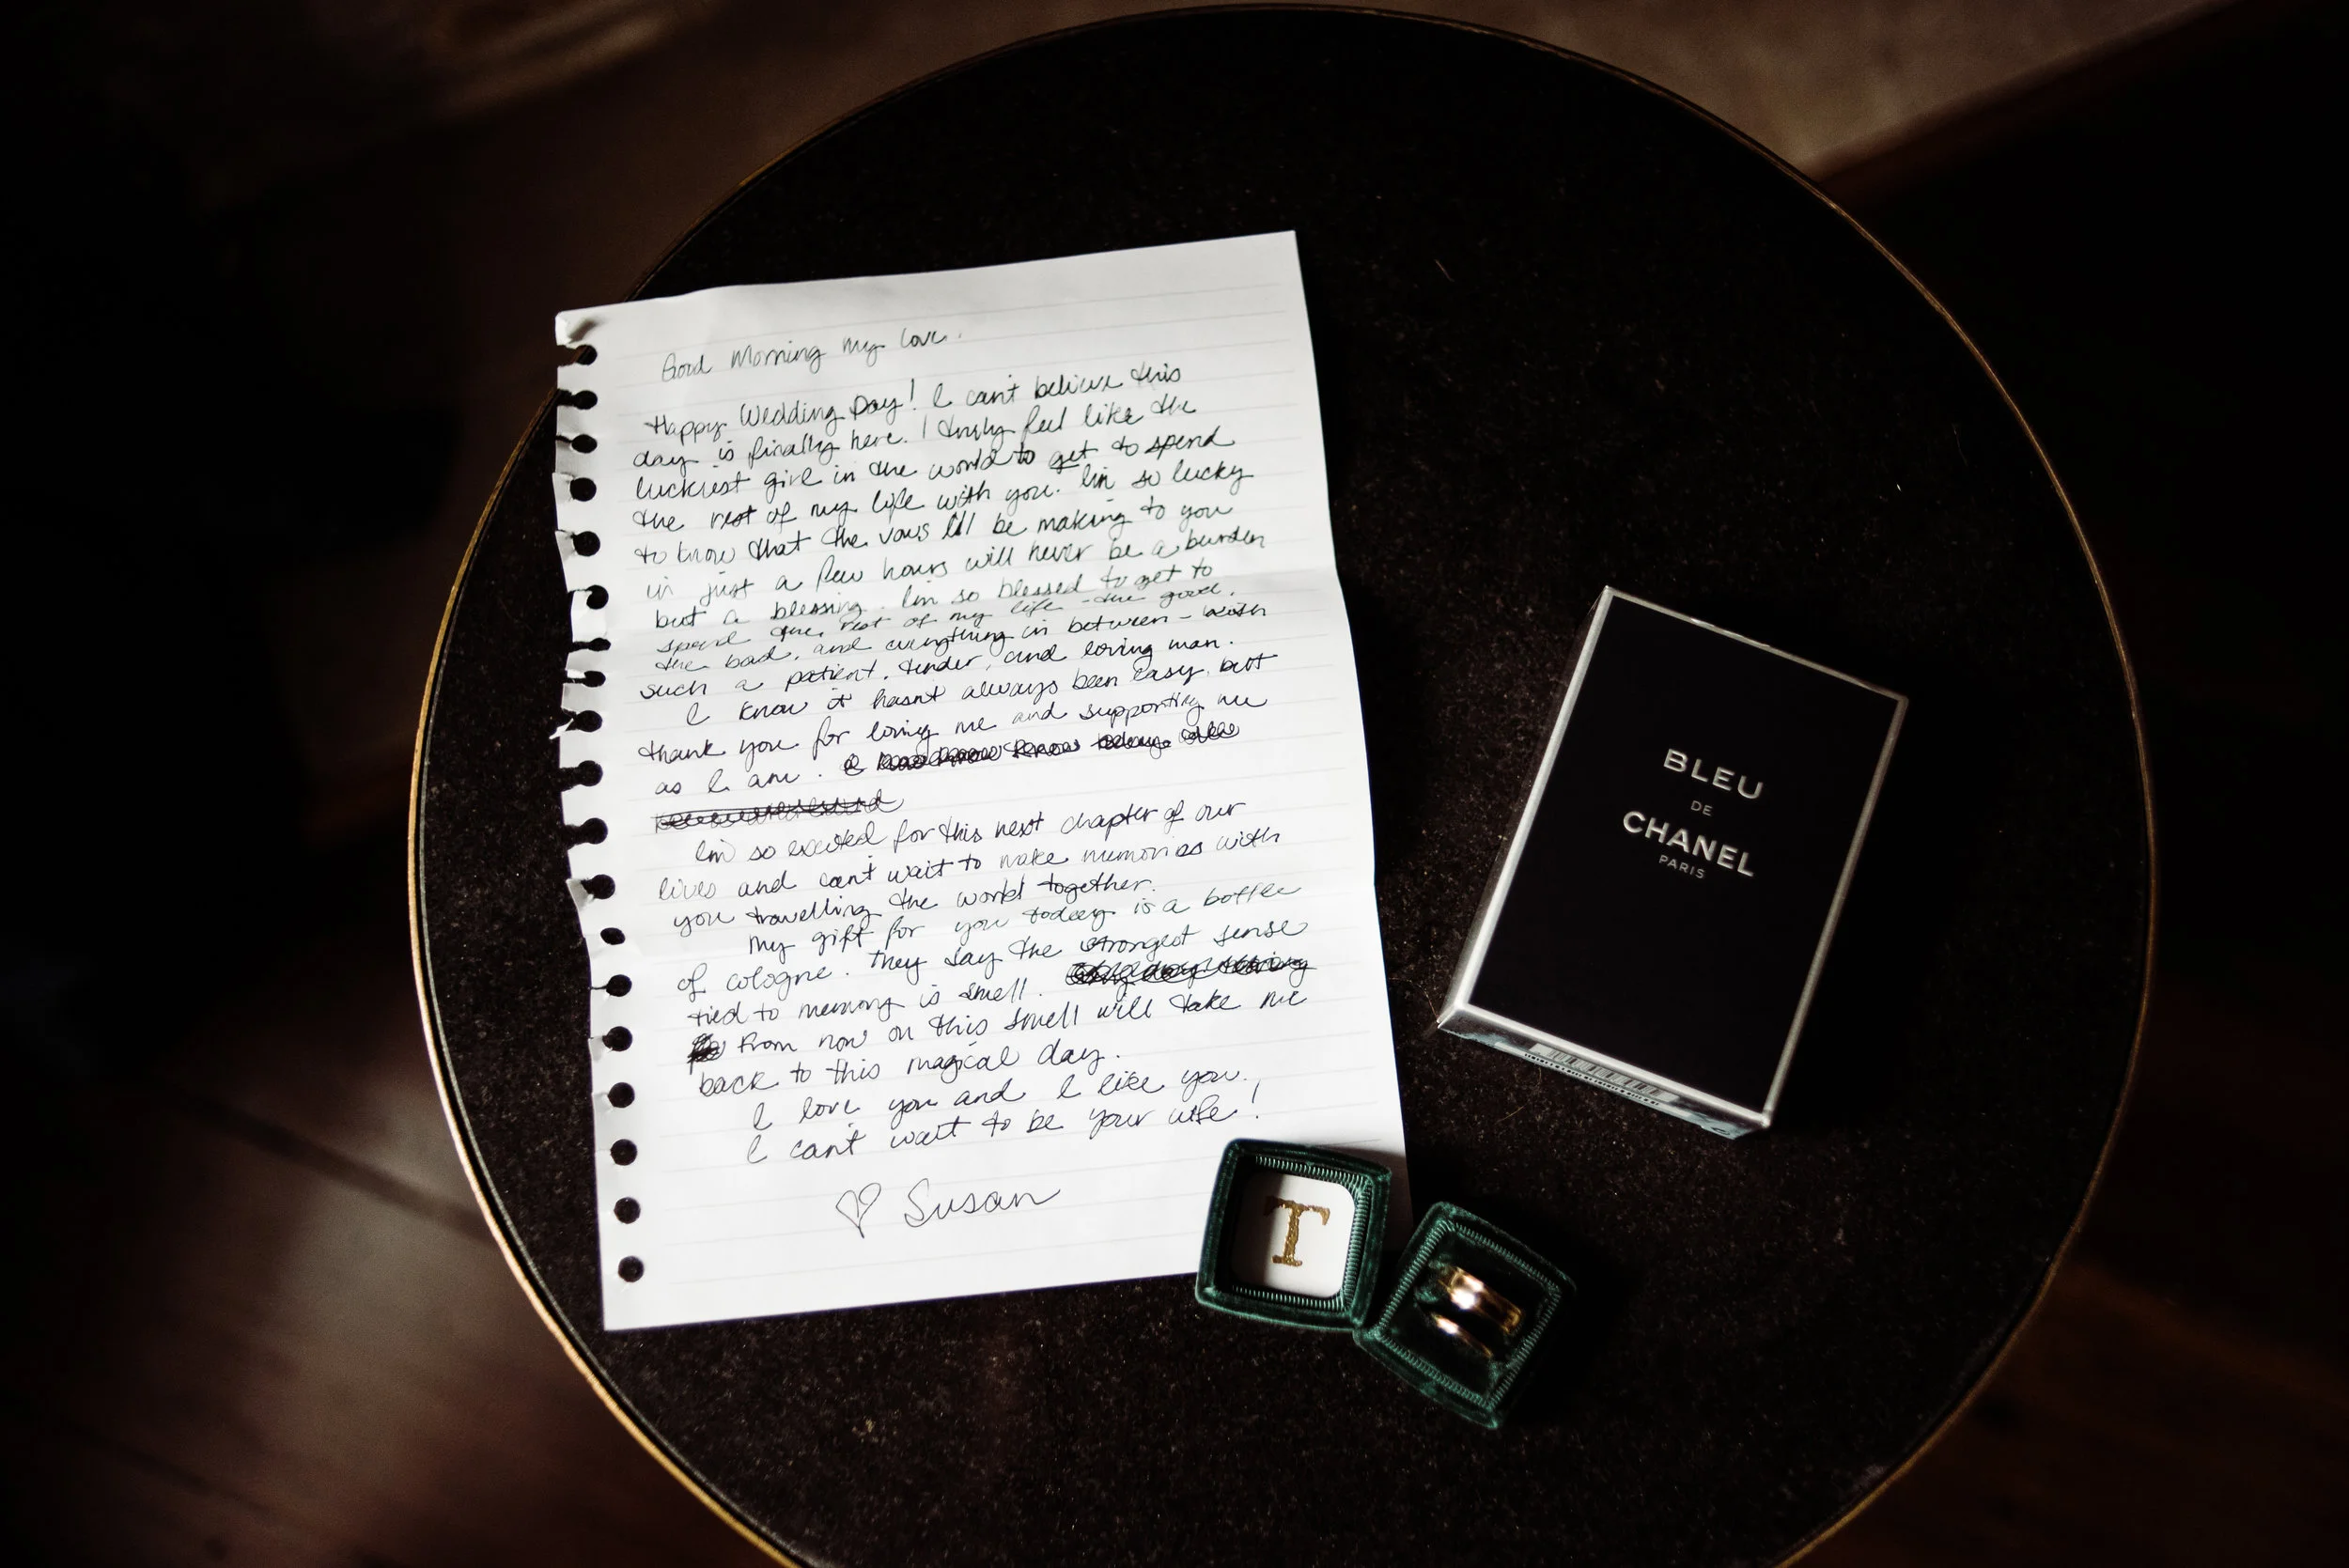 Good Morning my love.
Happy Wedding Day! I can't believe this
day is finally here. I truly feel like the
luckiest girl in the world to get to spend
the rest of my life with you. I'm so lucky
to know that the vows I'll be making to you
in just a few hours will never be a burden
but a blessing. I'm so blessed to get to
spend the rest of my life - the good,
the bad, and everything in between - with
such a patient, tender, and loving man.
I know it hasn't always been easy, but
thank you for loving me and supporting me
as I am.
I'm so excited for this next chapter of our
lives and can't wait to make memories with
you travelling the world together.
My gift for you today is a bottle
of cologne. They say the strongest sense
tied to memory is smell.
From now on this smell will take me
back to this magical day.
I love you and I like you.
I can't wait to be your wife!
♡ Susan
T
BLEU
DE
CHANEL
PARIS